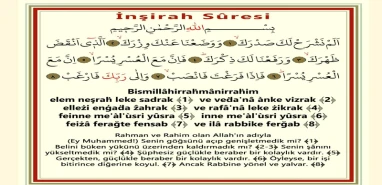 İnşirah Sûresi
بِسْمِ اللهِ الرَّحْمٰنِ الرَّحِيمِ
اَلَمْ نَشْرَحْ لَكَ صَدْرَكَ ۝ وَوَضَعْنَا عَنْكَ وِزْرَكَ ۝ اَلَّذٖٓي اَنْقَضَ
ظَهْرَكَ ۝ وَرَفَعْنَا لَكَ ذِكْرَكَ ۝ فَاِنَّ مَعَ الْعُسْرِ يُسْرًا ۝ اِنَّ مَعَ
الْعُسْرِ يُسْرًا ۝ فَاِذَا فَرَغْتَ فَانْصَبْ ۝ وَاِلٰى رَبِّكَ فَارْغَبْ ۝
Bismillâhirrahmânirrahîm
elem neşraḥ leke sadrak ﴾1﴿ ve veda'nâ ânke vizrak ﴾2﴿
elleżi engada żahrak ﴾3﴿ ve rafâ'nâ leke żikrak ﴾4﴿
feinne me'al'usri yüsra ﴾5﴿ inne me'al'usri yüsra ﴾6﴿
feiżâ ferağte fensab ﴾7﴿ ve ilâ rabbike ferğab ﴾8﴿
Rahman ve Rahim olan Allah'ın adıyla
(Ey Muhammed!) Senin göğsünü açıp genişletmedik mi? ﴾1﴿
Belini büken yükünü üzerinden kaldırmadık mı? ﴾2-3﴿ Senin şânını
yükseltmedik mi? ﴾4﴿ Şüphesiz güçlükle beraber bir kolaylık vardır. ﴾5﴿
Gerçekten, güçlükle beraber bir kolaylık vardır. ﴾6﴿ Öyleyse, bir işi
bitirince diğerine koyul. ﴾7﴿ Ancak Rabbine yönel ve yalvar. ﴾8﴿